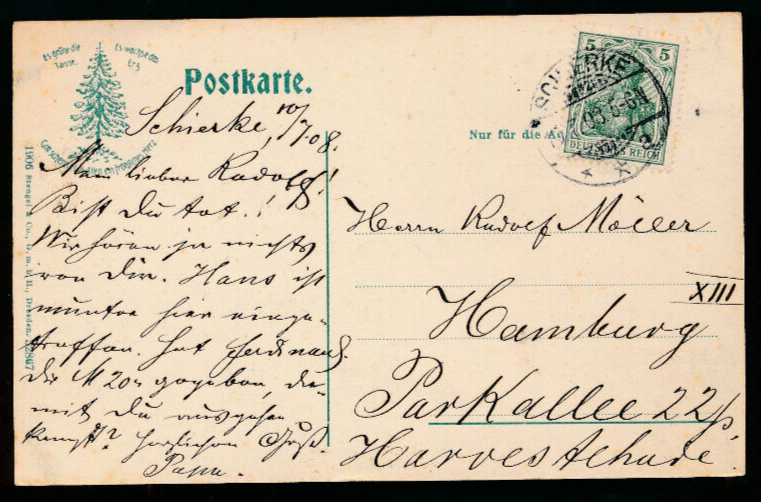 Es grüne die
Tanne,
Es wachse das
Erz
Gott schenke uns allen ein fröhliches Herz
Postkarte.
Nur für die Ad
5 5
DEUTSCHES REICH
SCHIERKE
Schierke, 10/7.08.
Mein lieber Rudolf!
Bist Du tot.!
Wir hören ja nichts
von Dir. Hans ist
munter hier einge-
troffen. Hat Ferdinand
Dir M 20 gegeben, da-
mit Du ausgehen
kannst? Herzlichen Gruß.
Papa.
Herrn Rudolf Möller
XIII
Hamburg
Parkallee 22
Harvestehude.
1906 Stengel & Co., G. m. b. H., Dresden.